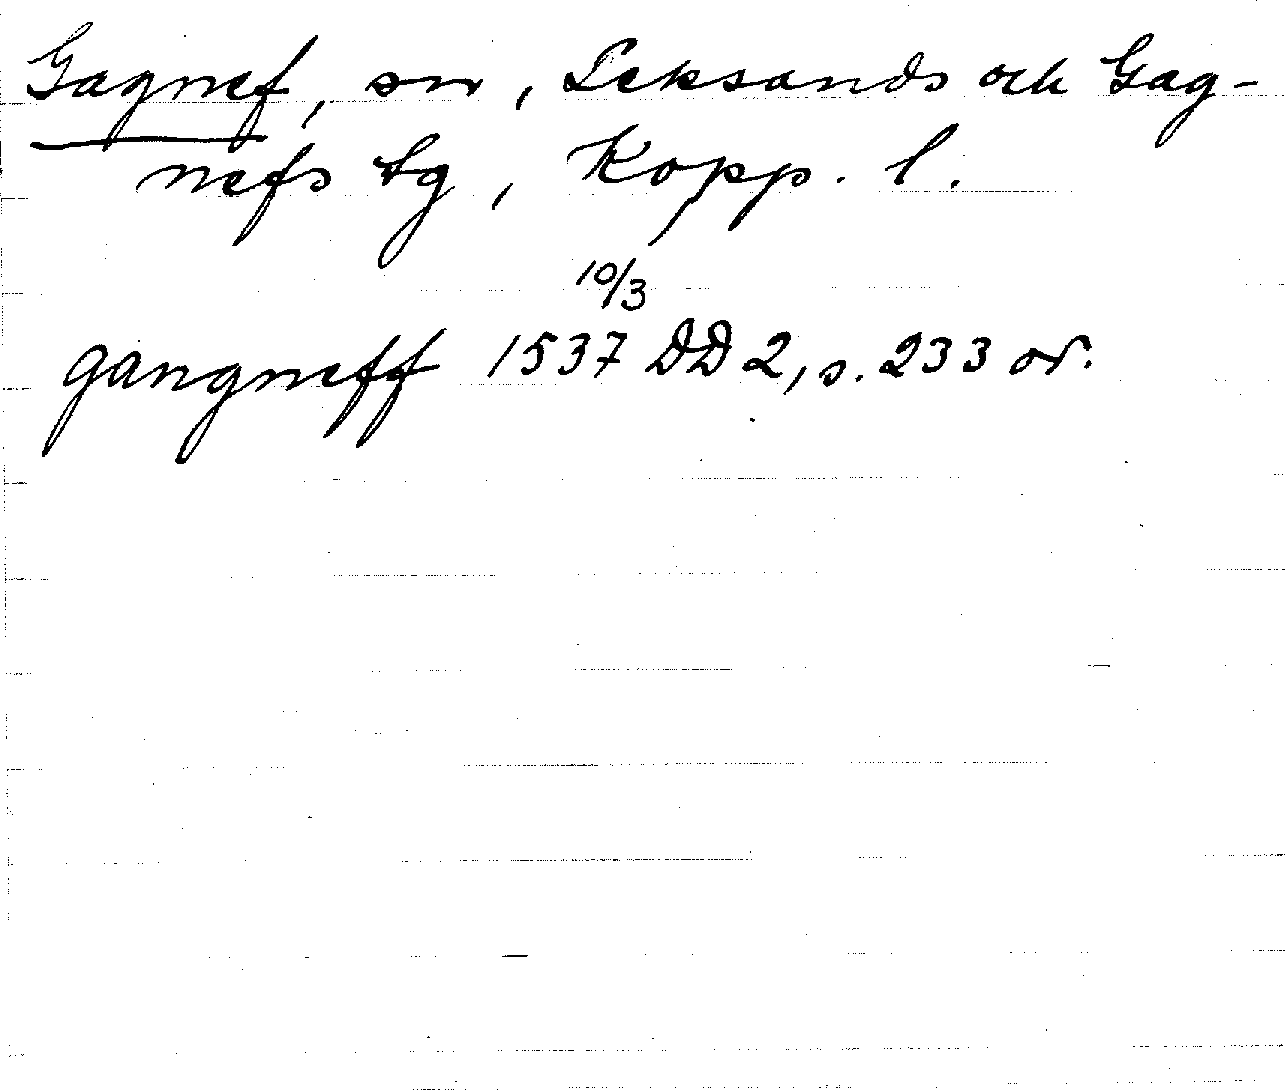 Gagnef, sn, Leksands och Gag-
nefs tg, Kopp. l.
10/3
gangneff 1537 DD 2, s. 233 or.